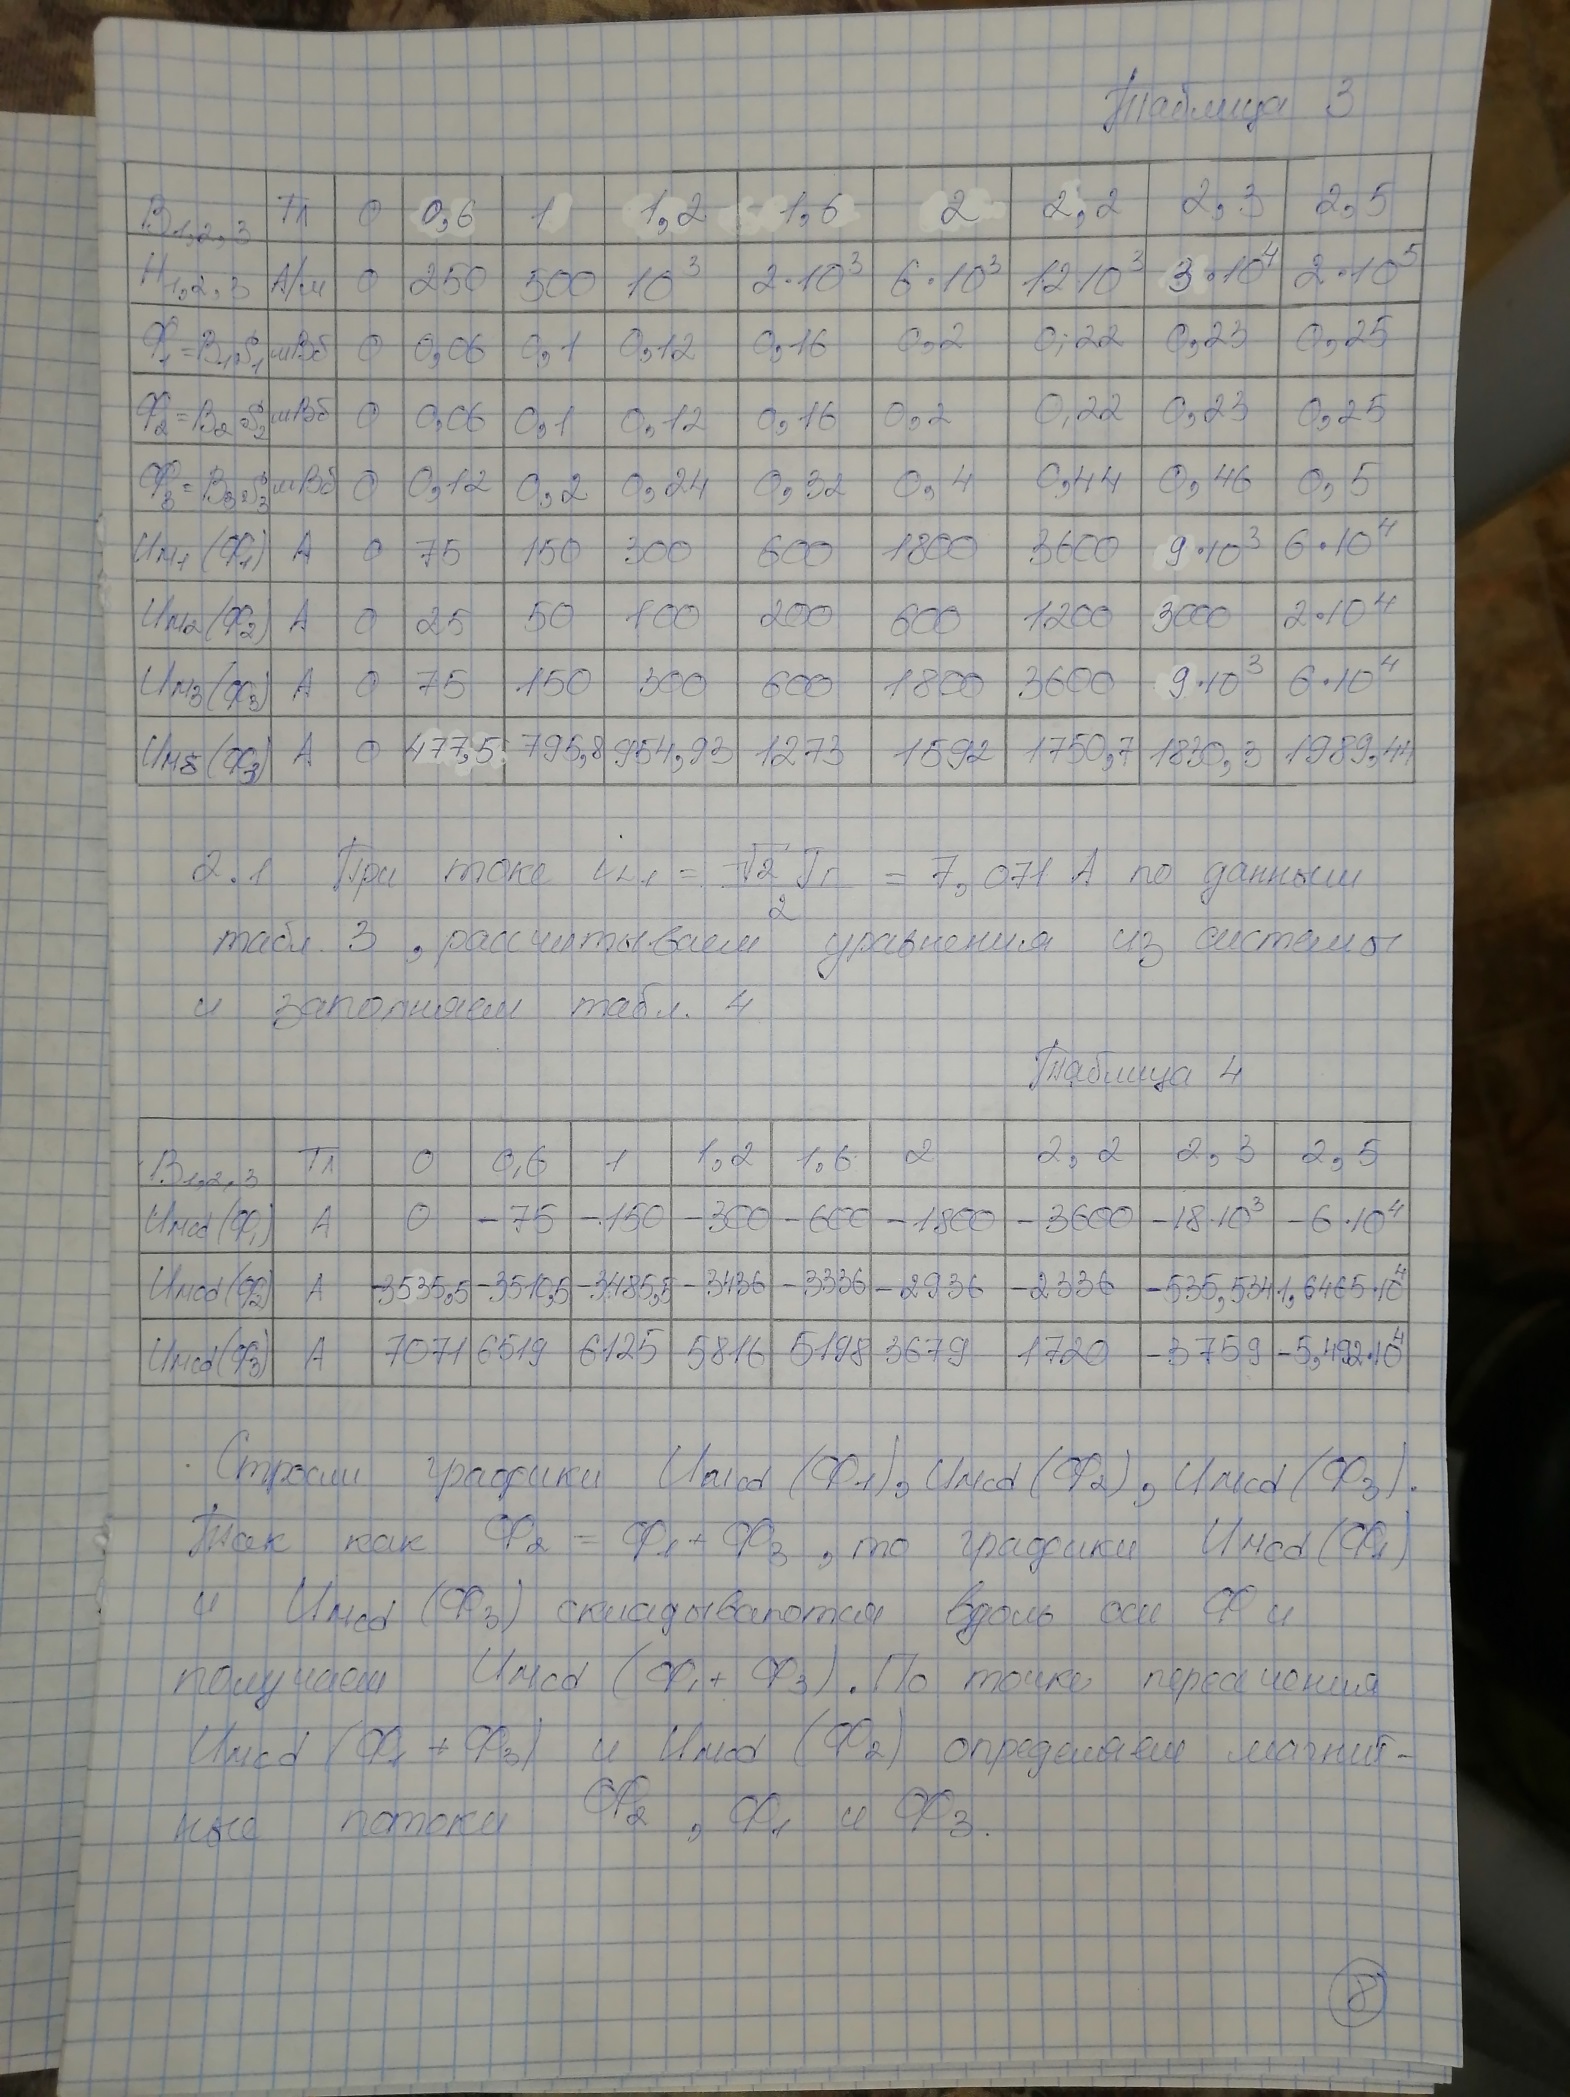 Таблица 3
B1,2,3 Тл 0 0,6 1 1,2 1,6 2 2,2 2,3 2,5
H1,2,3 А/м 0 250 500 10³ 2·10³ 6·10³ 12·10³ 3·10⁴ 2·10⁵
Ф1=B1·S1 мВб 0 0,06 0,1 0,12 0,16 0,2 0,22 0,23 0,25
Ф2=B2·S2 мВб 0 0,06 0,1 0,12 0,16 0,2 0,22 0,23 0,25
Ф3=B3·S3 мВб 0 0,12 0,2 0,24 0,32 0,4 0,44 0,46 0,5
Uм1(Ф1) А 0 75 150 300 600 1800 3600 9·10³ 6·10⁴
Uм2(Ф2) А 0 25 50 100 200 600 1200 3000 2·10⁴
Uм3(Ф3) А 0 75 150 300 600 1800 3600 9·10³ 6·10⁴
Uмδ(Ф3) А 0 477,5 795,8 954,93 1273 1592 1750,7 1830,3 1989,44
2.1 При токе iL1 = √2 Im / 2 = 7,071 А по данным
табл. 3, рассчитываем уравнения из системы
и заполняем табл. 4
Таблица 4
B1,2,3 Тл 0 0,6 1 1,2 1,6 2 2,2 2,3 2,5
Uмcd(Ф1) А 0 -75 -150 -300 -600 -1800 -3600 -18·10³ -6·10⁴
Uмcd(Ф2) А -3535,5 -3510,5 -3485,5 -3436 -3336 -2936 -2336 -535,534 1,6465·10⁴
Uмcd(Ф3) А 7071 6519 6125 5816 5198 3679 1720 -3759 -5,492·10⁴
Строим графики Uмcd(Ф1), Uмcd(Ф2), Uмcd(Ф3).
Так как Ф2 = Ф1 + Ф3, то графики Uмcd(Ф1)
и Uмcd(Ф3) складываются вдоль оси Ф и
получаем Uмcd(Ф1 + Ф3). По точке пересечения
Uмcd(Ф1 + Ф3) и Uмcd(Ф2) определяем магнит-
ные потоки Ф2, Ф1 и Ф3.
8